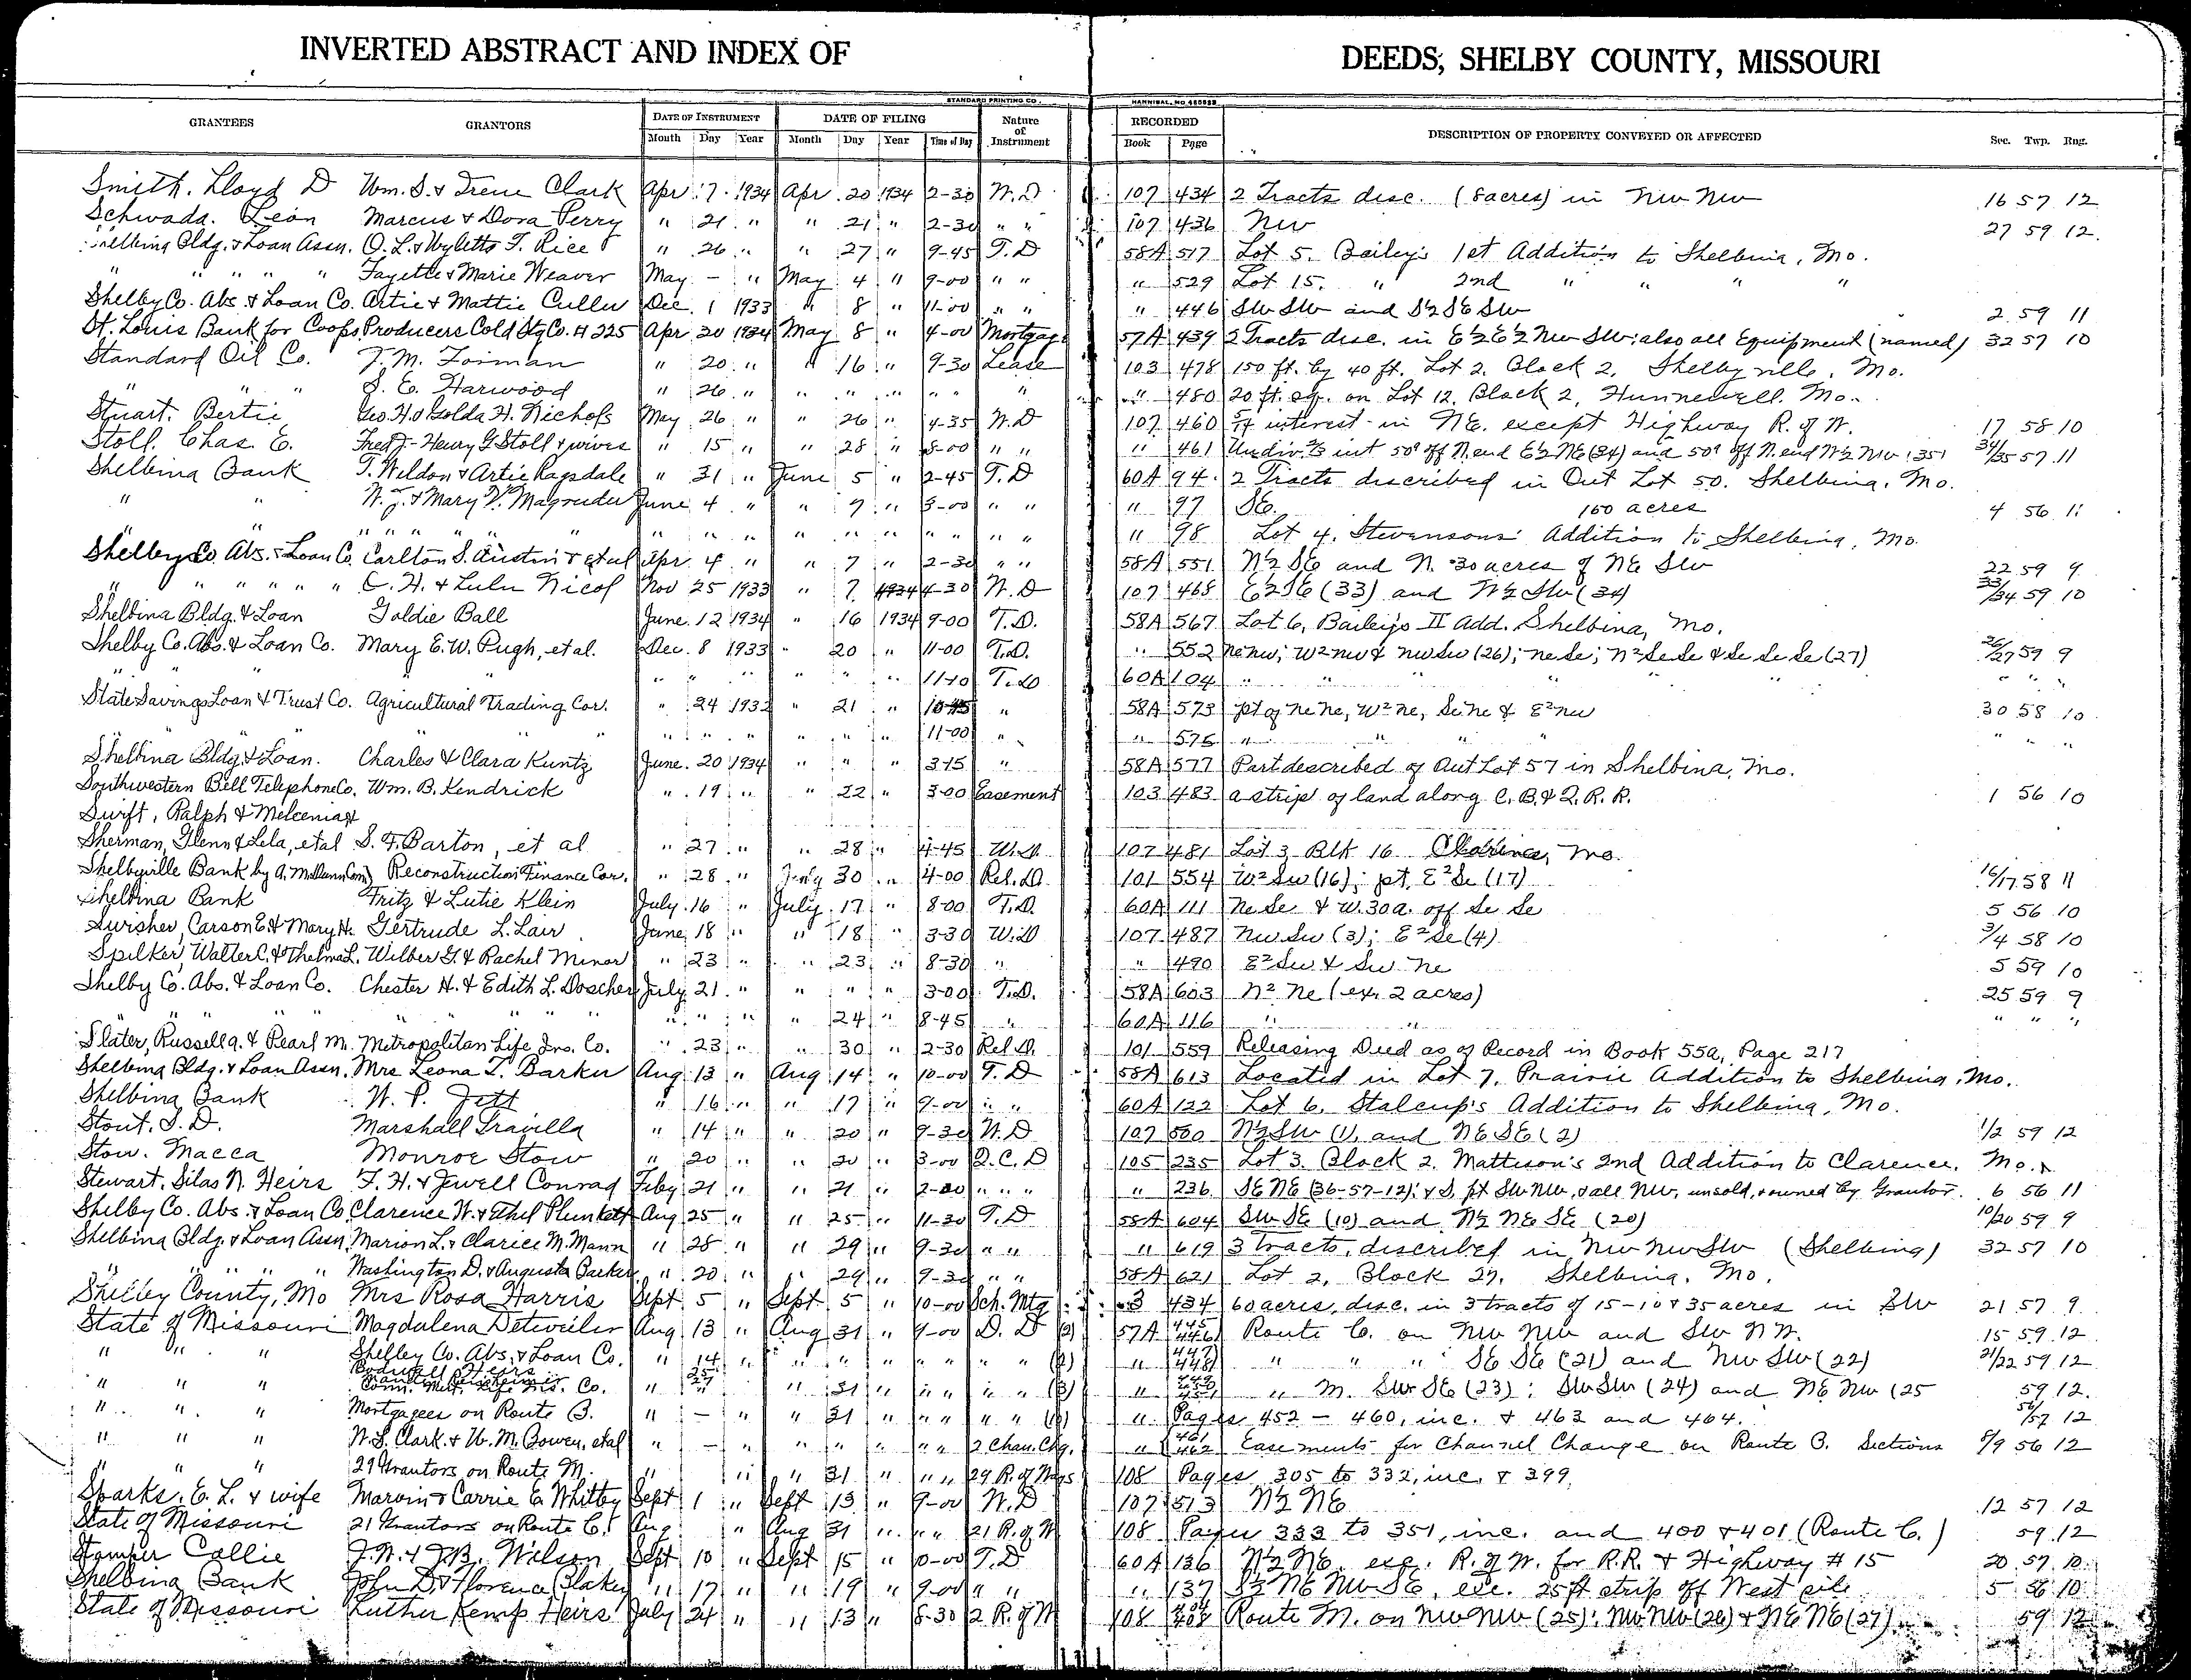 INVERTED ABSTRACT AND INDEX OF DEEDS, SHELBY COUNTY, MISSOURI
STANDARD PRINTING CO. HANNIBAL, MO
GRANTEES GRANTORS DATE OF INSTRUMENT DATE OF FILING Nature of Instrument RECORDED DESCRIPTION OF PROPERTY CONVEYED OR AFFECTED Sec. Twp. Rng.
Month Day Year Month Day Year Time of Day Book Page
Smith, Lloyd D Wm. S. & Irene Clark Apr 7 1934 Apr 20 1934 2-30 W.D 107 434 2 Tracts desc. (8 acres) in NW NW 16 57 12
Schwada, Leon Marcus & Dora Perry " 21 " " 21 " 2-30 " " 107 436 NW 27 59 12
Shelbina Bldg. & Loan Assn. O. L. & Wyletta F. Rice " 26 " " 27 " 9-45 T.D 58A 517 Lot 5. Bailey's 1st Addition to Shelbina, Mo.
" " " " " Fayette & Marie Weaver May - " May 4 " 9-00 " " " 529 Lot 15. " 2nd " " " "
Shelby Co. Abs. & Loan Co. Artie & Mattie Culler Dec. 1 1933 " 8 " 11-00 " " " 446 SW SW and S½ SE SW 2 59 11
St. Louis Bank for Coops Producers Cold Stg Co. # 225 Apr 20 1934 May 8 " 4-00 Mortgage 57A 439 2 Tracts desc. in E½ E½ NW SW; also all Equipment (named) 32 57 10
Standard Oil Co. J. M. Forman " 20 " " 16 " 9-30 Lease 103 478 150 ft. by 40 ft. Lot 2. Block 2, Shelbyville, Mo.
" " " S. E. Harwood " 26 " " " " " " " 480 20 ft. sq. on Lot 12, Block 2, Hunnewell, Mo.
Stuart, Bertie Geo. H. & Golda H. Nichols May 26 " " 26 " 4-35 W.D 107 460 interest in NE. except Highway R. of W. 17 58 10
Stoll, Chas. E. Fred J.- Henry G Stoll & wives " 15 " " 28 " 8-00 " " " 461 Undiv. ⅔ int 50a off N. end E½ NE (34) and 50a off N. end W½ NW (35) 34/35 57 11
Shelbina Bank T. Weldon & Artie Ragsdale " 31 " June 5 " 2-45 T.D 60A 94 2 Tracts described in Out Lot 50. Shelbina, Mo.
" " W. J. & Mary V. Magruder June 4 " " 7 " 3-00 " " " 97 SE. 160 acres 4 56 11
" " " " " " " " " " " " " " " " " " 98 Lot 4, Stevensons' Addition to Shelbina, Mo.
Shelby Co. Abs. & Loan Co. Carlton S. Austin & et al Apr. 4 " " 7 " 2-30 " " 58A 551 N½ SE and N. 30 acres of NE SW 22 59 9
" " " " " C. H. & Lulu Nicol Nov 25 1933 " 7 1934 4-30 W.D 107 468 E½ SE (33) and W½ SW (34) 33/34 59 10
Shelbina Bldg. & Loan Goldie Ball June 12 1934 " 16 1934 9-00 T.D. 58A 567 Lot 6, Bailey's II Add. Shelbina, Mo.
Shelby Co. Abs. & Loan Co. Mary E. W. Pugh, et al. Dec. 8 1933 " 20 " 11-00 T.D. " 552 Ne Nw; W² Nw & Nw Sw (26); Ne Se; N² Se Se & Se Se Se (27) 26/27 59 9
" " " " " " " " 11-10 T.D 60A 104 " " " " " " " "
State Savings Loan & Trust Co. Agricultural Trading Cor. " 24 1932 " 21 " 10-45 " 58A 573 pt of Ne Ne, W² Ne, Se Ne & E² Nw 30 58 10
" " " " " " " " " 11-00 " " 575 " " " " " " "
Shelbina Bldg. & Loan. Charles & Clara Kuntz June. 20 1934 " " " 3-15 " 58A 577 Part described of Out Lot 57 in Shelbina, Mo.
Southwestern Bell Telephone Co. Wm. B. Kendrick " 19 " " 22 " 3-00 Easement 103 483 a strip of land along C. B. & Q. R. R. 1 56 10
Swift, Ralph & Melcenia &
Sherman, Glenn & Lela, et al S. F. Barton, et al " 27 " " 28 " 4-45 W.D. 107 481 Lot 3 Blk 16 Clarence, Mo.
Shelbyville Bank by Reconstruction Finance Cor. " 28 " 30 " 4-00 Rel. D. 101 554 W² Sw (16); pt. E² Se (17) 16/17 58 11
Shelbina Bank Fritz & Lutie Klein July 16 " July 17 " 8-00 T.D. 60A 111 Ne Se & W. 30 a. off Se Se 5 56 10
Swisher, Carson E. & Mary H. Gertrude L. Lair June 18 " " 18 " 3-30 W.D 107 487 Nw Sw (3); E² Se (4) 3/4 58 10
Spilker, Walter C. & Thelma L. Wilber G. & Rachel Minor " 23 " " 23 " 8-30 " " 490 E² Sw & Sw Ne 5 59 10
Shelby Co. Abs. & Loan Co. Chester H. & Edith L. Doscher July 21 " " " " 3-00 T.D. 58A 603 N² Ne (ex. 2 acres) 25 59 9
" " " " " " " " " " " 24 " 8-45 " 60A 116 " " " " "
Slater, Russell A. & Pearl M. Metropolitan Life Ins. Co. " 23 " " 30 " 2-30 Rel. D. 101 559 Releasing Deed as of Record in Book 55a, Page 217
Shelbina Bldg. & Loan Assn. Mrs Leona T. Barker Aug 13 " Aug 14 " 10-00 T.D 58A 613 Located in Lot 7, Prairie Addition to Shelbina, Mo.
Shelbina Bank W. P. Jett " 16 " " 17 " 9-00 " " 60A 122 Lot 6. Stalcup's Addition to Shelbina, Mo.
Stout, S. D. Marshall Travilla " 14 " " 20 " 9-30 W.D 107 500 N½ SW (1), and NE SE (2) 1/2 59 12
Stow, Macca Monroe Stow " 20 " " 20 " 3-00 Q.C.D 105 235 Lot 3. Block 2. Mattison's 2nd Addition to Clarence, Mo.
Stewart, Silas N. Heirs F. H. & Jewell Conrad Feby 21 " " 21 " 2-00 " " " " 236 SE NE (36-57-12); & S. pt SW NW, & all NW, unsold, & owned by Grantor. 6 56 11
Shelby Co. Abs. & Loan Co. Clarence W. & Ethel Plunkett Aug 25 " " 25 " 11-30 T.D 58A 604 SW SE (10) and N½ NE SE (20) 10/20 59 9
Shelbina Bldg. & Loan Assn. Marion L. & Clarice M. Mann " 28 " " 29 " 9-30 " " " 619 3 tracts, described in NW NW SW (Shelbina) 32 57 10
" " " " " Washington D. & Augusta Barker " 20 " " 29 " 9-30 " " 58A 621 Lot 2, Block 27. Shelbina, Mo.
Shelby County, Mo Mrs Rosa Harris Sept 5 " Sept 5 " 10-00 Sch. Mtg 3 434 60 acres, desc. in 3 tracts of 15-10 & 35 acres in SW 21 57 9
State of Missouri Magdalena Detweiler Aug 13 " Aug 31 " 9-00 D. D (2) 57A 445 446 Route C. on NW NW and SW NW. 15 59 12
" " " Shelby Co. Abs. & Loan Co. " 14 " " " " " " " " (2) " 447 448 " " " SE SE (21) and NW SW (22) 21/22 59 12
" " " Bodwell Heirs Conn. Mut. Life Ins. Co. " " " 31 " " " " " (3) " " M. SW SE (23); SW SW (24) and NE NW (25 59 12
" " " Mortgagees on Route B. " - " " 31 " " " " " " Pages 452 - 460, inc. & 463 and 464. 56/57 12
" " " W. S. Clark & W. M. Bowen, et al " - " " " " " " 2 Chan. Chg. " 461 462 Easements for Channel Change on Route B. Sections 8/9 56 12
" " " 29 Grantors on Route M. " " " 31 " " " 29 R. of Ways 108 Pages 305 to 332, inc. & 399.
Sparks, E. L. & wife Marvin & Carrie E. Whitby Sept 1 " Sept 13 " 9-00 W.D 107 513 N½ NE 12 57 12
State of Missouri 21 Grantors on Route C. Aug " Aug 31 " " " 21 R. of W 108 Pages 333 to 351, inc. and 400 & 401 (Route C.) 59 12
Stamper Callie J. W. & J. B. Wilson Sept 10 " Sept 15 " 10-00 T.D 60A 136 N½ NE, exc. R. of W. for R.R. & Highway # 15 20 57 10
Shelbina Bank John D. & Florence Blakey " 17 " " 19 " 9-00 " " " 137 S½ NE NW SE, exc. 25 ft strip off West side 5 56 10
State of Missouri Luther Kemp Heirs July 24 " " 13 " 8-30 2 R. of W 108 Route M. on NW NW (25); NW NW (26) & NE NE (27) 59 12